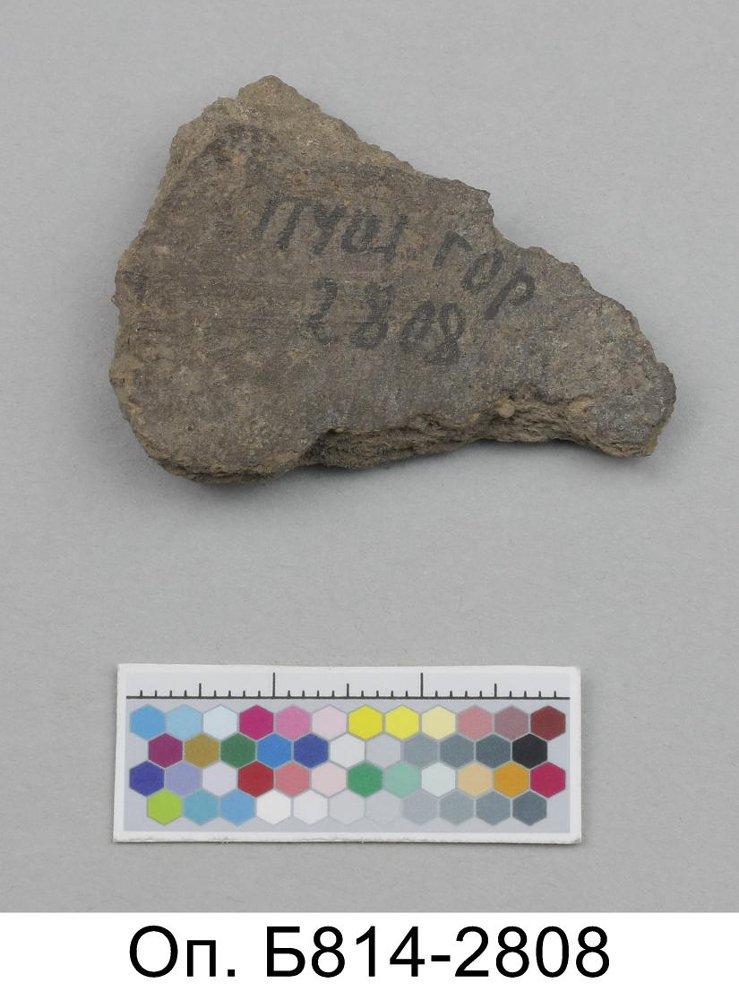 гор
2808
Оп. Б814-2808